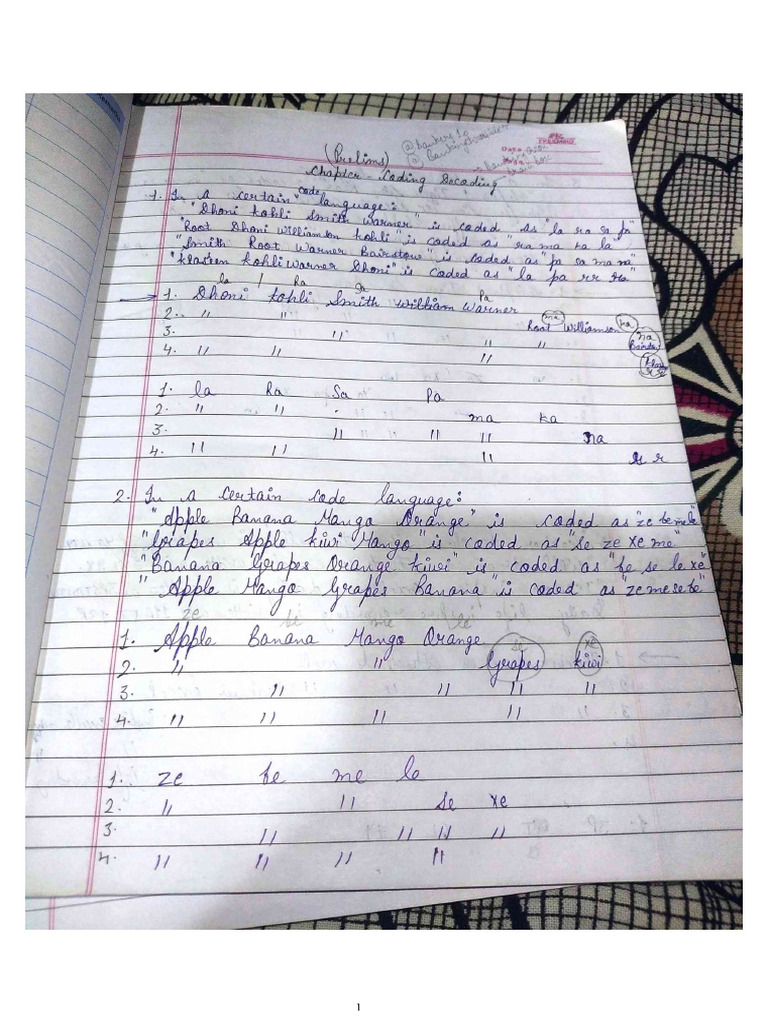 (Prelims)
Chapter - Coding Decoding
Date
1. In a certain code language:
"Dhoni Kohli Smith Warner" is coded as "la ra sa pa"
"Root Dhoni Williamson Kohli" is coded as "ra ma ka la"
"Smith Root Warner Bairstow" is coded as "pa sa ma na"
"Klasten Kohli Warner Dhoni" is coded as "la pa rr ra"
la Ra Sa Pa
1. Dhoni Kohli Smith William Warner
2. " " Root ma Williamson ka
3. " " na
4. " " " "
1. la Ra Sa Pa
2. " " ma ka
3. " " " na
4. " " "
2. In a certain code language:
"Apple Banana Mango Orange" is coded as "ze be me le"
"Grapes Apple kiwi Mango" is coded as "se ze xe me"
"Banana Grapes Orange kiwi" is coded as "be se le xe"
"Apple Mango Grapes Banana" is coded as "ze me se be"
ze me le se xe
1. Apple Banana Mango Orange
2. " " Grapes kiwi
3. " " " "
4. " " " "
1. ze be me le
2. " " se xe
3. " " " "
4. " " " "
1